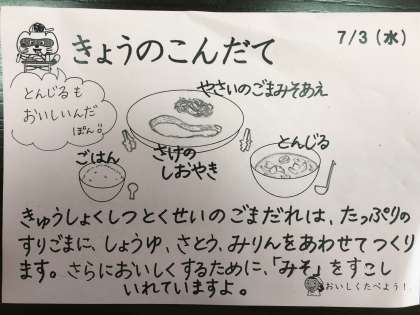 きょうのこんだて
7/3（水）
とんじるも
おいしいんだ
ぽん!!
やさいのごまみそあえ
さけの
しおやき
ごはん
とんじる
きゅうしょくしつとくせいのごまだれは、たっぷりの
すりごまに、しょうゆ、さとう、みりんをあわせてつくり
ます。さらにおいしくするために、「みそ」をすこし
いれていますよ。
おいしくたべよう！